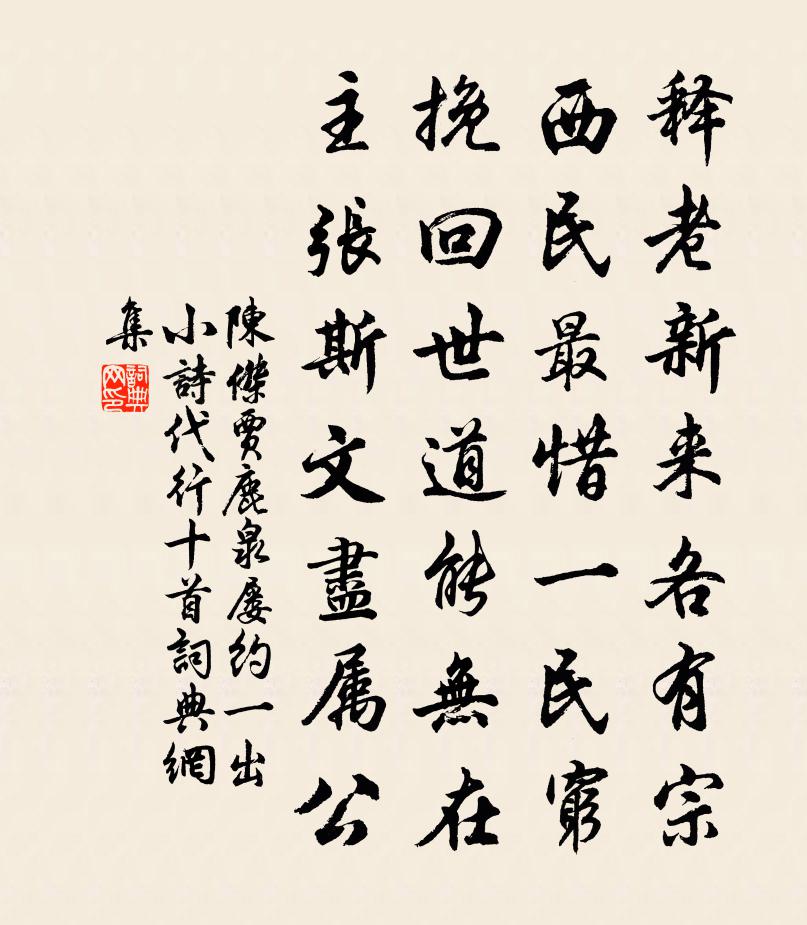 释老新来各有宗
西民最惜一民穷
挽回世道能無在
主張斯文盡属公
陳傑賈鹿泉屡约一出
小詩代行十首詞典網
集
詞典
网印